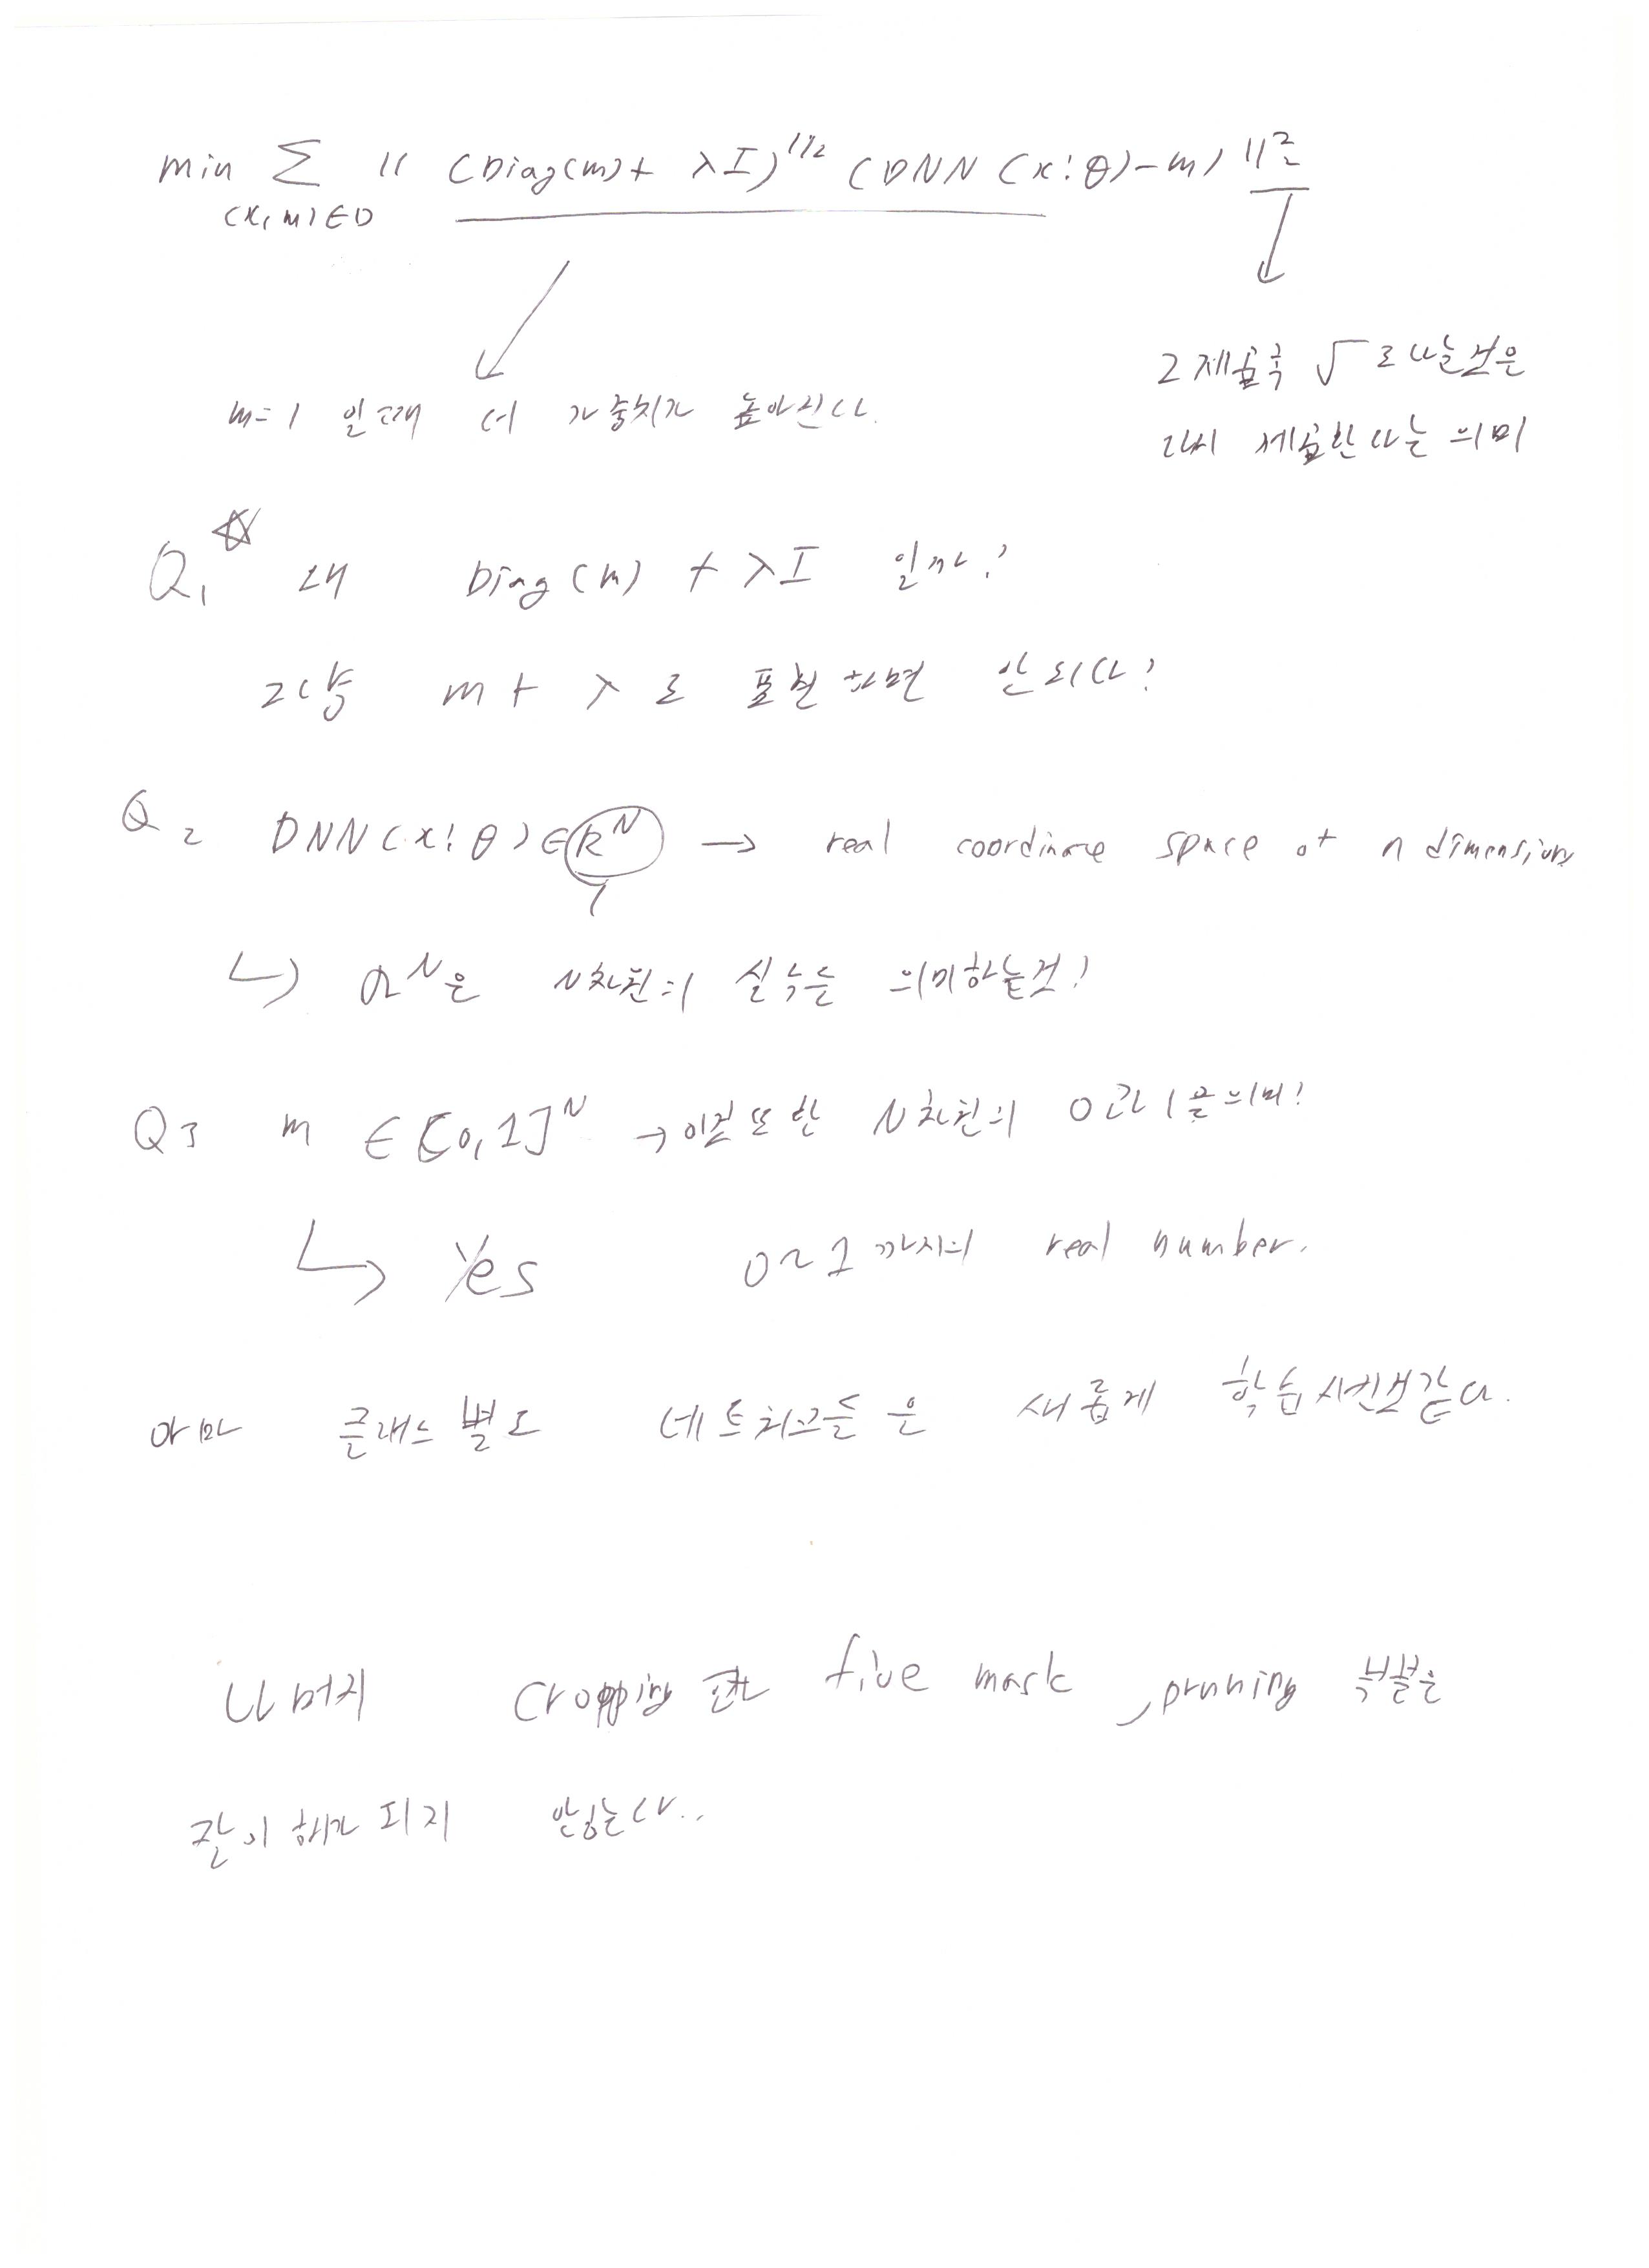 min Σ || (Diag(m) + λI)^1/2 (DNN(x;θ) - m) ||_2^2
(x, m) ∈ D
m=1 일 때 더 가중치가 높아진다.
2 제곱후 √ 로 나눈것은
다시 제곱한다는 의미
Q1 ☆ 왜 Diag(m) + λI 일까?
그냥 m + λ 로 표현하면 안되나?
Q2 DNN(x;θ) ∈ R^N → real coordinate space of n dimensions
↳ R^N은 N차원의 실수를 의미하는것!
Q3 m ∈ [0,1]^N → 이것 또한 N차원의 0과 1을 의미!
↳ Yes 0~1 까지의 real number.
아마 클래스별로 네트워크들은 새롭게 학습시킨것같다.
나머지 cropping five mask, pruning 부분은
잘 이해가 되지 않는다..